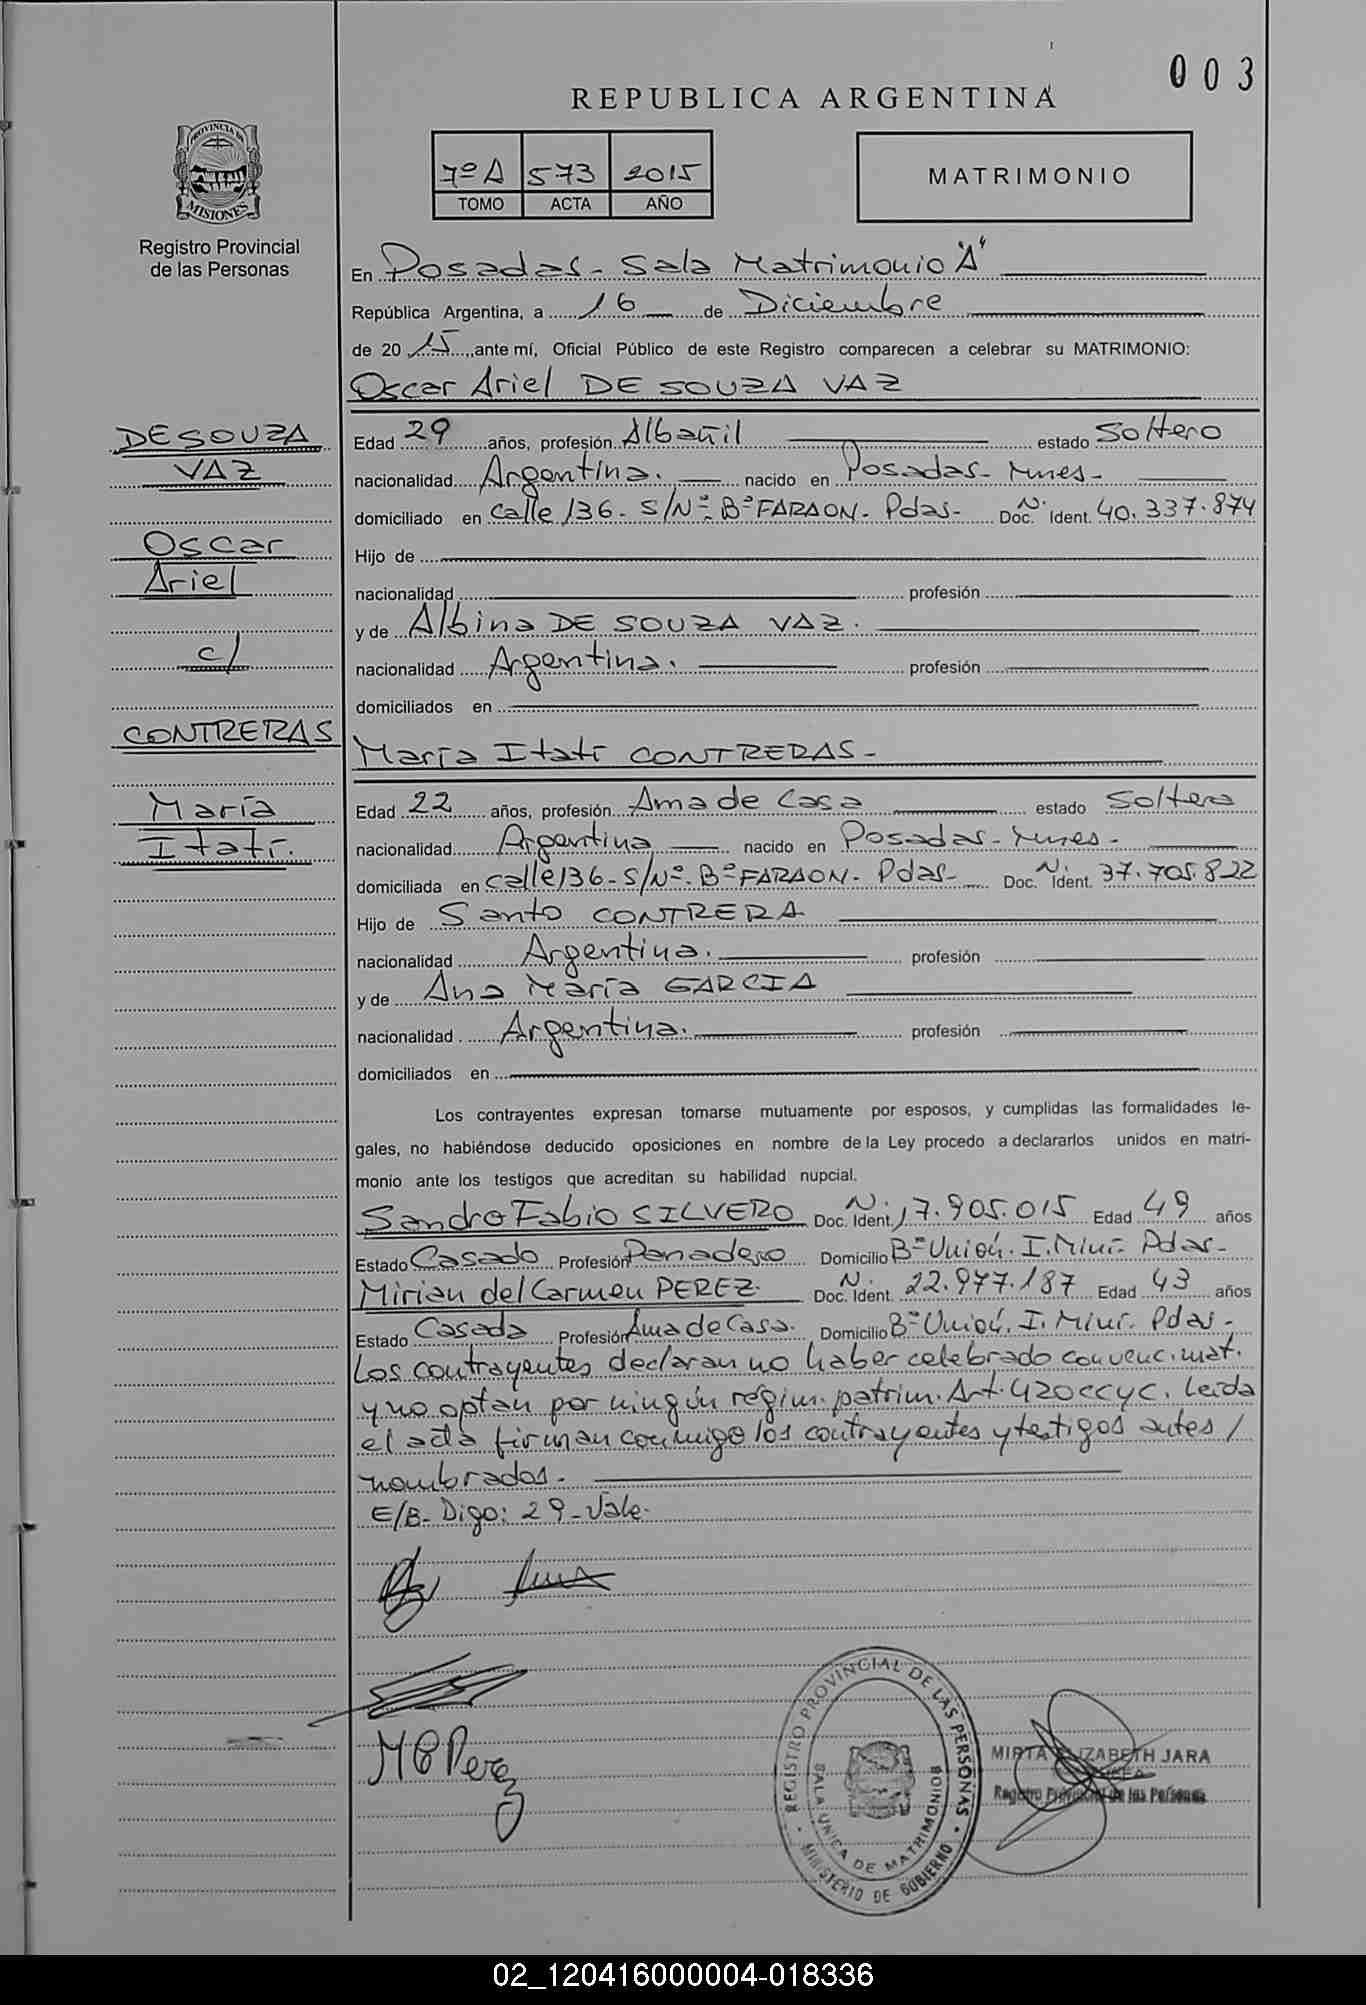 003
REPUBLICA ARGENTINA
PROVINCIA DE
MISIONES
Registro Provincial
de las Personas
7º A 573 2015
TOMO ACTA AÑO
MATRIMONIO
En Posadas - Sala Matrimonio "A"
República Argentina, a 16 de Diciembre
de 2015, ante mí, Oficial Público de este Registro comparecen a celebrar su MATRIMONIO:
Oscar Ariel DE SOUZA VAZ
DE SOUZA
VAZ
Oscar
Ariel
c/
CONTRERAS
María
Itatí.
Edad 29 años, profesión Albañil estado Soltero
nacionalidad Argentina. nacido en Posadas - Mnes -
domiciliado en calle 136 - S/Nº - Bº FARAON - Pdas - Doc. Nº Ident. 40.337.874
Hijo de
nacionalidad profesión
y de Albina DE SOUZA VAZ.
nacionalidad Argentina. profesión
domiciliados en
María Itatí CONTRERAS -
Edad 22 años, profesión Ama de Casa estado Soltera
nacionalidad Argentina nacido en Posadas - Mnes -
domiciliada en calle 136 - S/Nº - Bº FARAON - Pdas - Doc. Nº Ident. 37.705.822
Hijo de Santo CONTRERA
nacionalidad Argentina. profesión
y de Ana María GARCIA
nacionalidad Argentina. profesión
domiciliados en
Los contrayentes expresan tomarse mutuamente por esposos, y cumplidas las formalidades le-
gales, no habiéndose deducido oposiciones en nombre de la Ley procedo a declararlos unidos en matri-
monio ante los testigos que acreditan su habilidad nupcial.
Sandro Fabio SILVERO Doc. Nº Ident. 17.905.015 Edad 49 años
Estado Casado Profesión Panadero Domicilio Bº Unión. I. Miní - Pdas -
Mirian del Carmen PEREZ. Doc. Nº Ident. 22.977.187 Edad 43 años
Estado Casada Profesión Ama de Casa. Domicilio Bº Unión. I. Miní - Pdas -
Los contrayentes declaran no haber celebrado convenc. mat.
y no optan por ningún régim. patrim. Art. 420 CCYC. Leída
el acta firman conmigo los contrayentes y testigos antes /
nombrados.
E/B - Digo: 29 - Vale.
M C Perez
REGISTRO PROVINCIAL DE LAS PERSONAS
SALA UNICA DE MATRIMONIOS
MINISTERIO DE GOBIERNO
MIRTA ELIZABETH JARA
Registro Provincial de las Personas
02_120416000004-018336